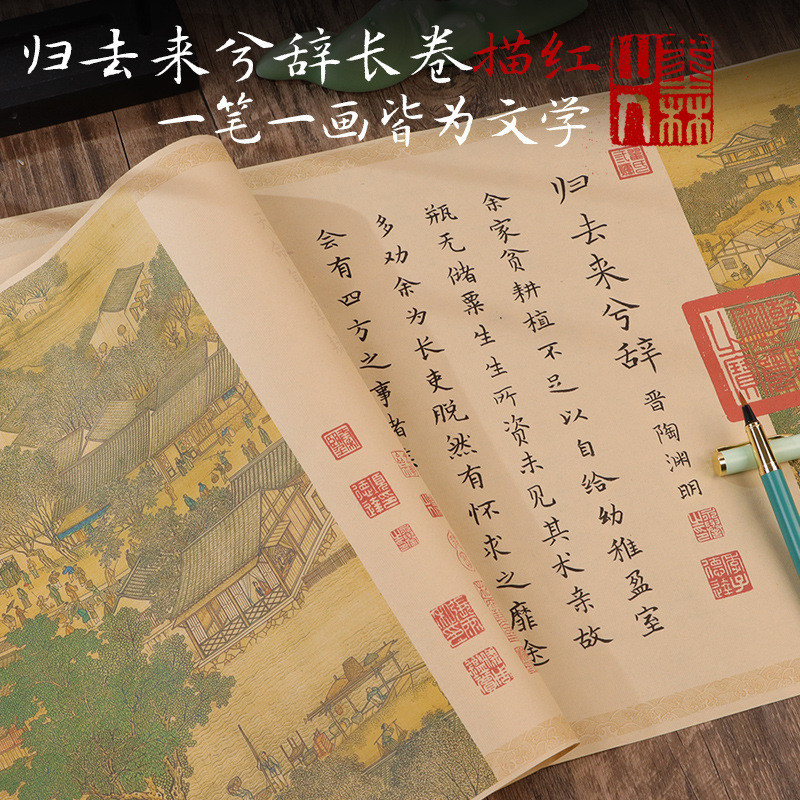 归去来兮辞长卷描红
一笔一画皆为文学
归去来兮辞
晋陶渊明
余家贫耕植不足以自给幼稚盈室
瓶无储粟生生所资未见其术亲故
多劝余为长吏脱然有怀求之靡途
会有四方之事者